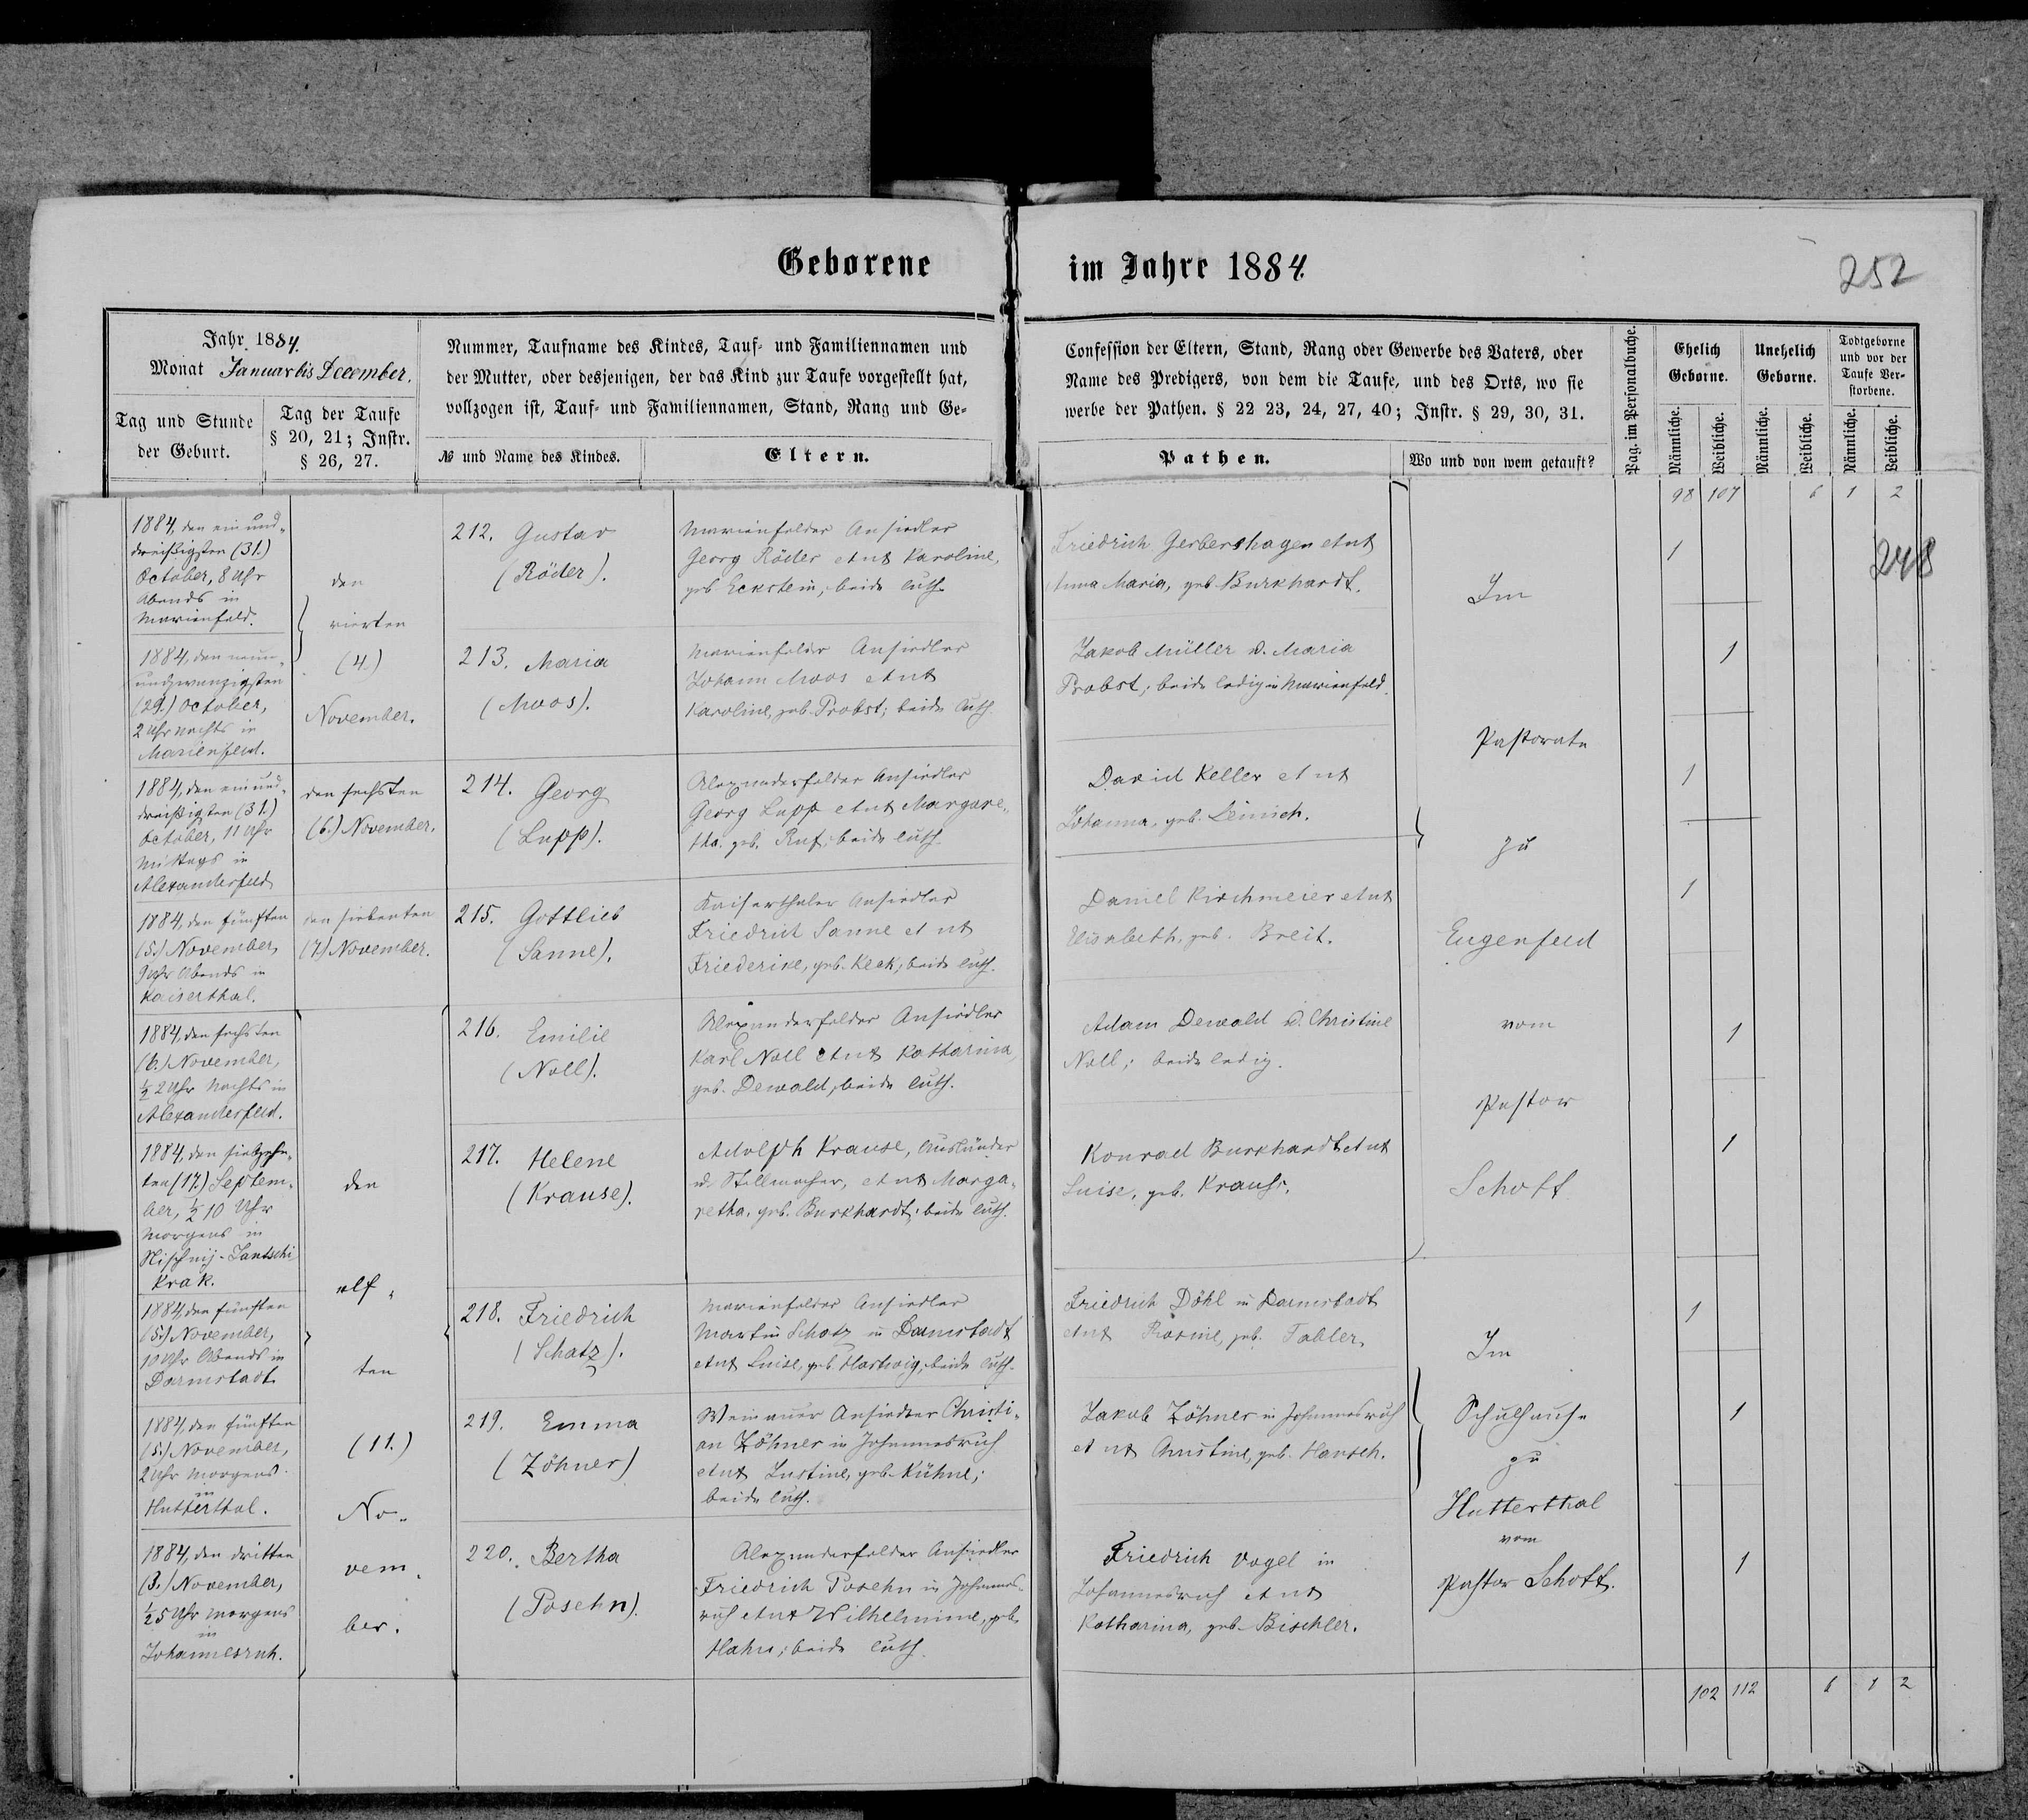 Geborene im Jahre 1884.
252
Jahr 1884.
Monat Januar bis December.
Tag und Stunde
der Geburt.
Tag der Taufe
§ 20, 21; Instr.
§ 26, 27.
Nummer, Taufname des Kindes, Tauf- und Familiennamen und
der Mutter, oder desjenigen, der das Kind zur Taufe vorgestellt hat,
vollzogen ist, Tauf- und Familiennamen, Stand, Rang und Ge-
№ und Name des Kindes.
Eltern.
Confession der Eltern, Stand, Rang oder Gewerbe des Vaters, oder
Name des Predigers, von dem die Taufe, und des Orts, wo sie
werbe der Pathen. § 22 23, 24, 27, 40; Instr. § 29, 30, 31.
Pathen.
Wo und von wem getauft?
Pag. im Personalbuche.
Ehelich
Geborne.
Unehelich
Geborne.
Todtgeborne
und vor der
Taufe Ver-
storbene.
Männliche.
Weibliche.
Männliche.
Weibliche.
Männliche.
Weibliche.
98 107 6 1 2
248
1884, den ein und-
dreißigsten (31.)
October, 8 Uhr
Abends in
Marienfeld.
den
vierten
(4.)
November.
212. Gustav
(Röder).
Marienfelder Ansiedler
Georg Röder et ux Karoline,
geb. Eckstein; beide luth.
Friedrich Gerbershagen et ux
Anna Maria, geb. Burkhardt.
1
1884, den neun-
undzwanzigsten
(29.) October,
2 Uhr Nachts in
Marienfeld.
213. Maria
(Moos).
Marienfelder Ansiedler
Johann Moos et ux
Karoline, geb. Probst; beide luth.
Jakob Müller u. Maria
Probst; beide ledig in Marienfeld.
1
1884, den ein und-
dreißigsten (31.)
October, 11 Uhr
Mittags in
Alexanderfeld
den sechsten
(6.) November.
214. Georg
(Lupp).
Alexanderfelder Ansiedler
Georg Lupp et ux Margare-
tha, geb. Ruf; beide luth.
David Keller et ux
Johanna, geb. Leinich.
1
1884, den fünften
(5.) November,
9 Uhr Abends in
Kaiserthal.
den siebenten
(7.) November.
215. Gottlieb
(Sanne).
Kaiserthaler Ansiedler
Friedrich Sanne et ux
Friederike, geb. Keck; beide luth.
Daniel Kirchmeier et ux
Elisabeth, geb. Breit.
1
1884, den sechsten
(6.) November,
½ 2 Uhr Nachts in
Alexanderfeld.
216. Emilie
(Noll).
Alexanderfelder Ansiedler
Karl Noll et ux Katharina,
geb. Dewald; beide luth.
Adam Dewald u. Christine
Noll; beide ledig.
1
Im
Pastorate
zu
Eugenfeld
vom
Pastor
Schott
1884, den siebzehn-
ten (17.) Septem-
ber, ½ 10 Uhr
Morgens in
Nischnij-Santschi
Krak.
217. Helene
(Krause).
Adolph Krause, Ausländer
u. Stellmacher, et ux Marga-
retha, geb. Burkhardt; beide luth.
Konrad Burkhardt et ux
Luise, geb. Krauss.
1
den
elf-
ten
(11.)
No-
vem-
ber.
1884, den fünften
(5.) November,
10 Uhr Abends in
Darmstadt
218. Friedrich
(Schatz).
Marienfelder Ansiedler
Martin Schatz in Darmstadt
et ux Luise, geb. Hartwig; beide luth.
Friedrich Döhl in Darmstadt
et ux Rosine, geb. Tabler.
1
1884, den fünften
(5.) November,
2 Uhr Morgens
in
Hutterthal.
219. Emma
(Zöhner)
Weinauer Ansiedler Christi-
an Zöhner in Johannesruh
et ux Justine, geb. Kühne;
beide luth.
Jakob Zöhner in Johannesruh
et ux Christine, geb. Hansch.
1
1884, den dritten
(3.) November,
½ 5 Uhr Morgens
in
Johannesruh.
220. Bertha
(Posehn).
Alexanderfelder Ansiedler
Friedrich Posehn in Johannes-
ruh et ux Wilhelmine, geb.
Hahn; beide luth.
Friedrich Vogel in
Johannesruh et ux
Katharina, geb. Bischler.
1
Im
Schulhause
zu
Hutterthal
vom
Pastor Schott.
102 112 6 1 2